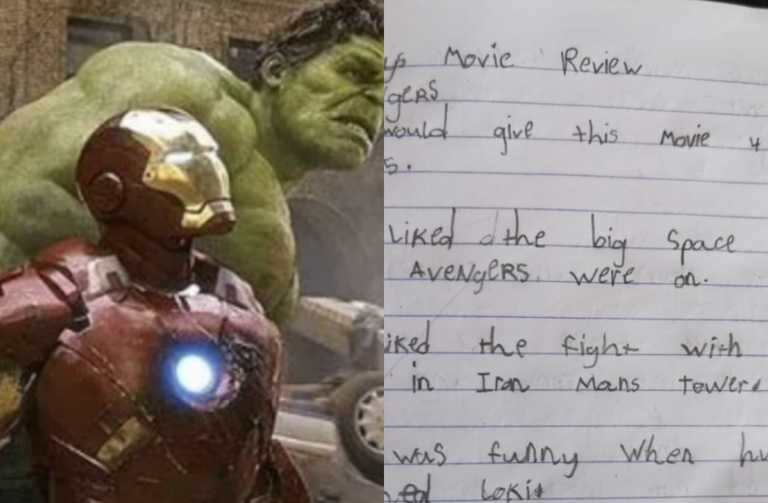 Movie Review
gers
would give this Movie 4
s.
Liked the big Space
AVENgERS. were on.
iked the fight with
in Iron Mans tower.
was funny when hu
ed Loki